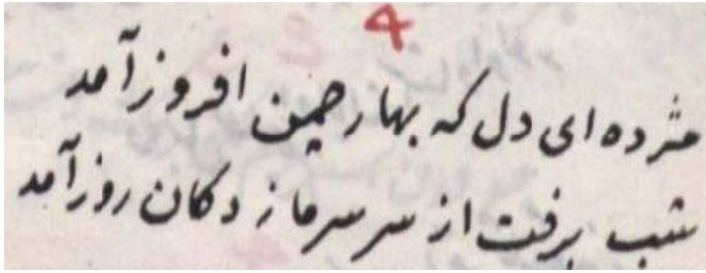 4
مژده ای دل که بهار چمن افروز آمد
شب برفت از سر سرما زدگان روز آمد